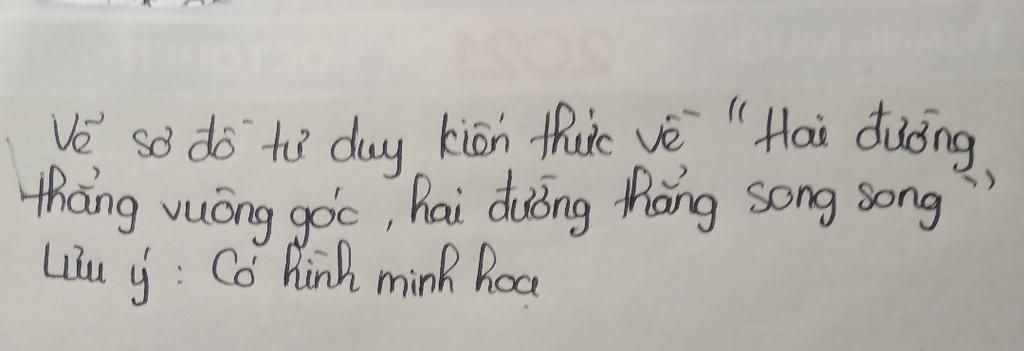 THÁNG MƯỜI
2021
OCTOBER
Vẽ sơ đồ tư duy kiến thức về "Hai đường
thẳng vuông góc, hai đường thẳng song song"
Lưu ý : Có hình minh hoạ